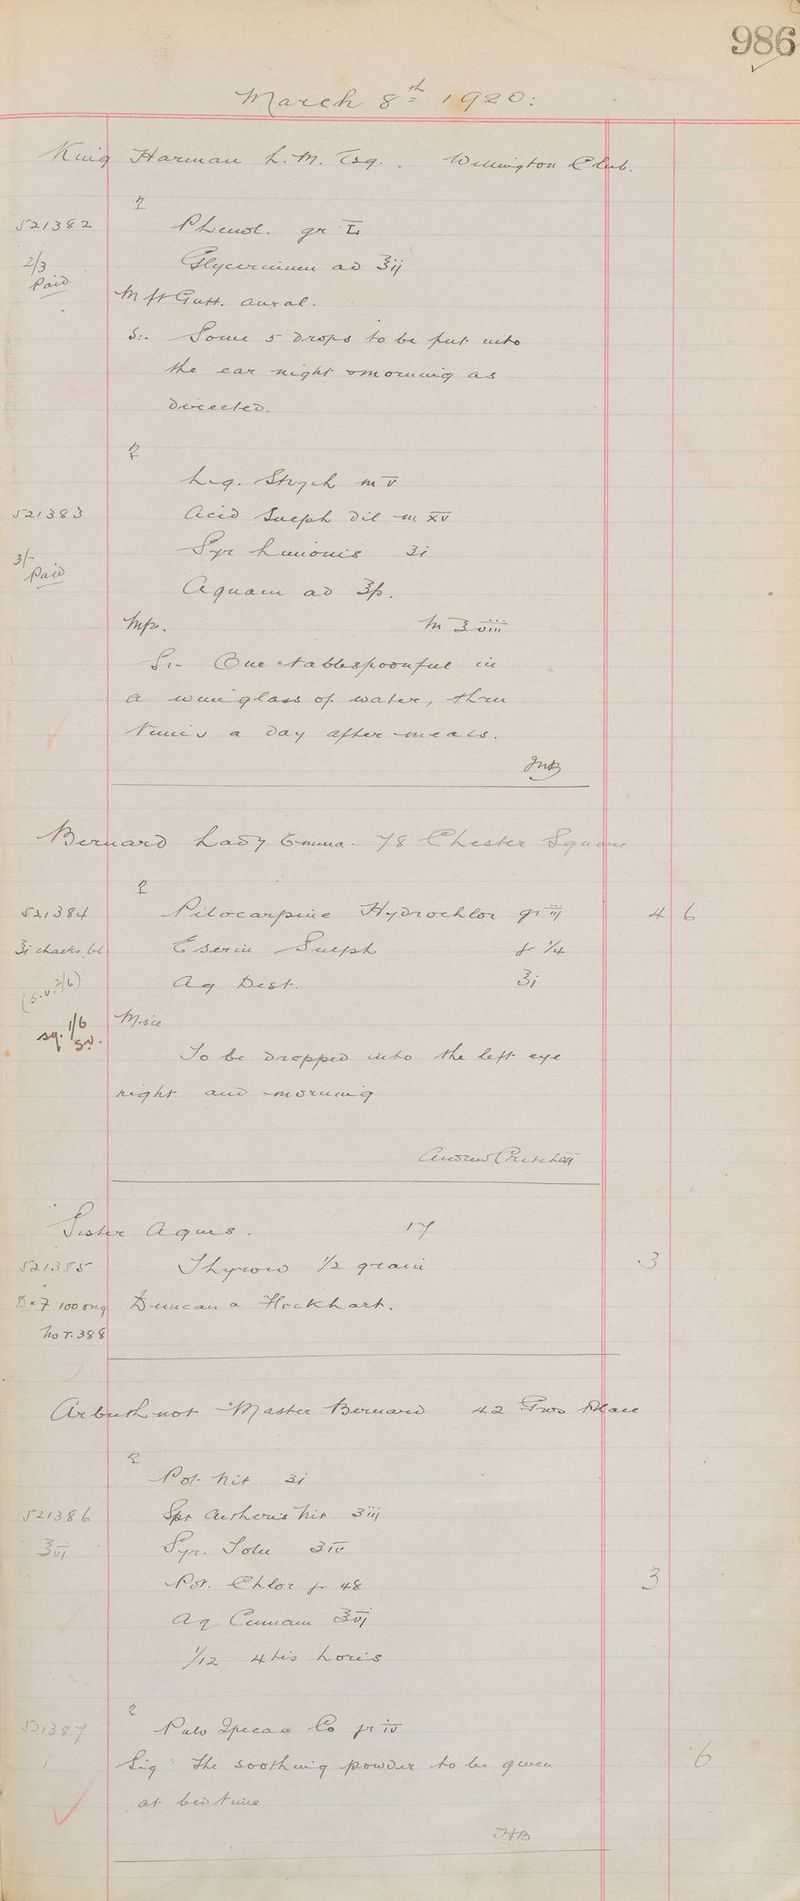 986
March 8th 1920:
King Harman L. M. Esq. . Wellington Club.
℞
521382 Phenol. gr
2/3 Glycerinum ad ℥ij
Paid
M ft Gutt. aural.
S:. Some 5 drops to be put into
the ear night & morning as
Directed.
℞
Liq. Strych m v
521383 Acid Sulph Dil m xv
3/- Syr Limonis ʒi
Paid
Aquam ad
M ℥ viii
S:- One tablespoonful in
a wineglass of water, three
times a day after meals.
Bernard Lady Emma. 78 Chester Square
℞
521384 Pilocarpine Hydrochlor gr iij 4 6
Eserin Sulph gr 1/4
(s.v. 2/6) Aq Dest. ℥j
1/6 Misce
To be dropped into the left eye
night and morning
Andrew Pritchett
Sister Agnes. 17
521385 Thyroid 1/2 grain 3
Duncan & Flockhart.
No T. 388
Arbuthnot Master Bernard 42 Place
℞
Pot. Nit ʒi
521386 Spt Aetheris Nit ʒiij
℥vi Syr. Tolu ʒiv
Pot. Chlor gr 48 3
Aq Cinnam ℥vj
1/12 4tis horis
℞
521387 Pulv Ipecac Co gr iv
Sig: The soothing powder to be given 6
at bedtime
HB